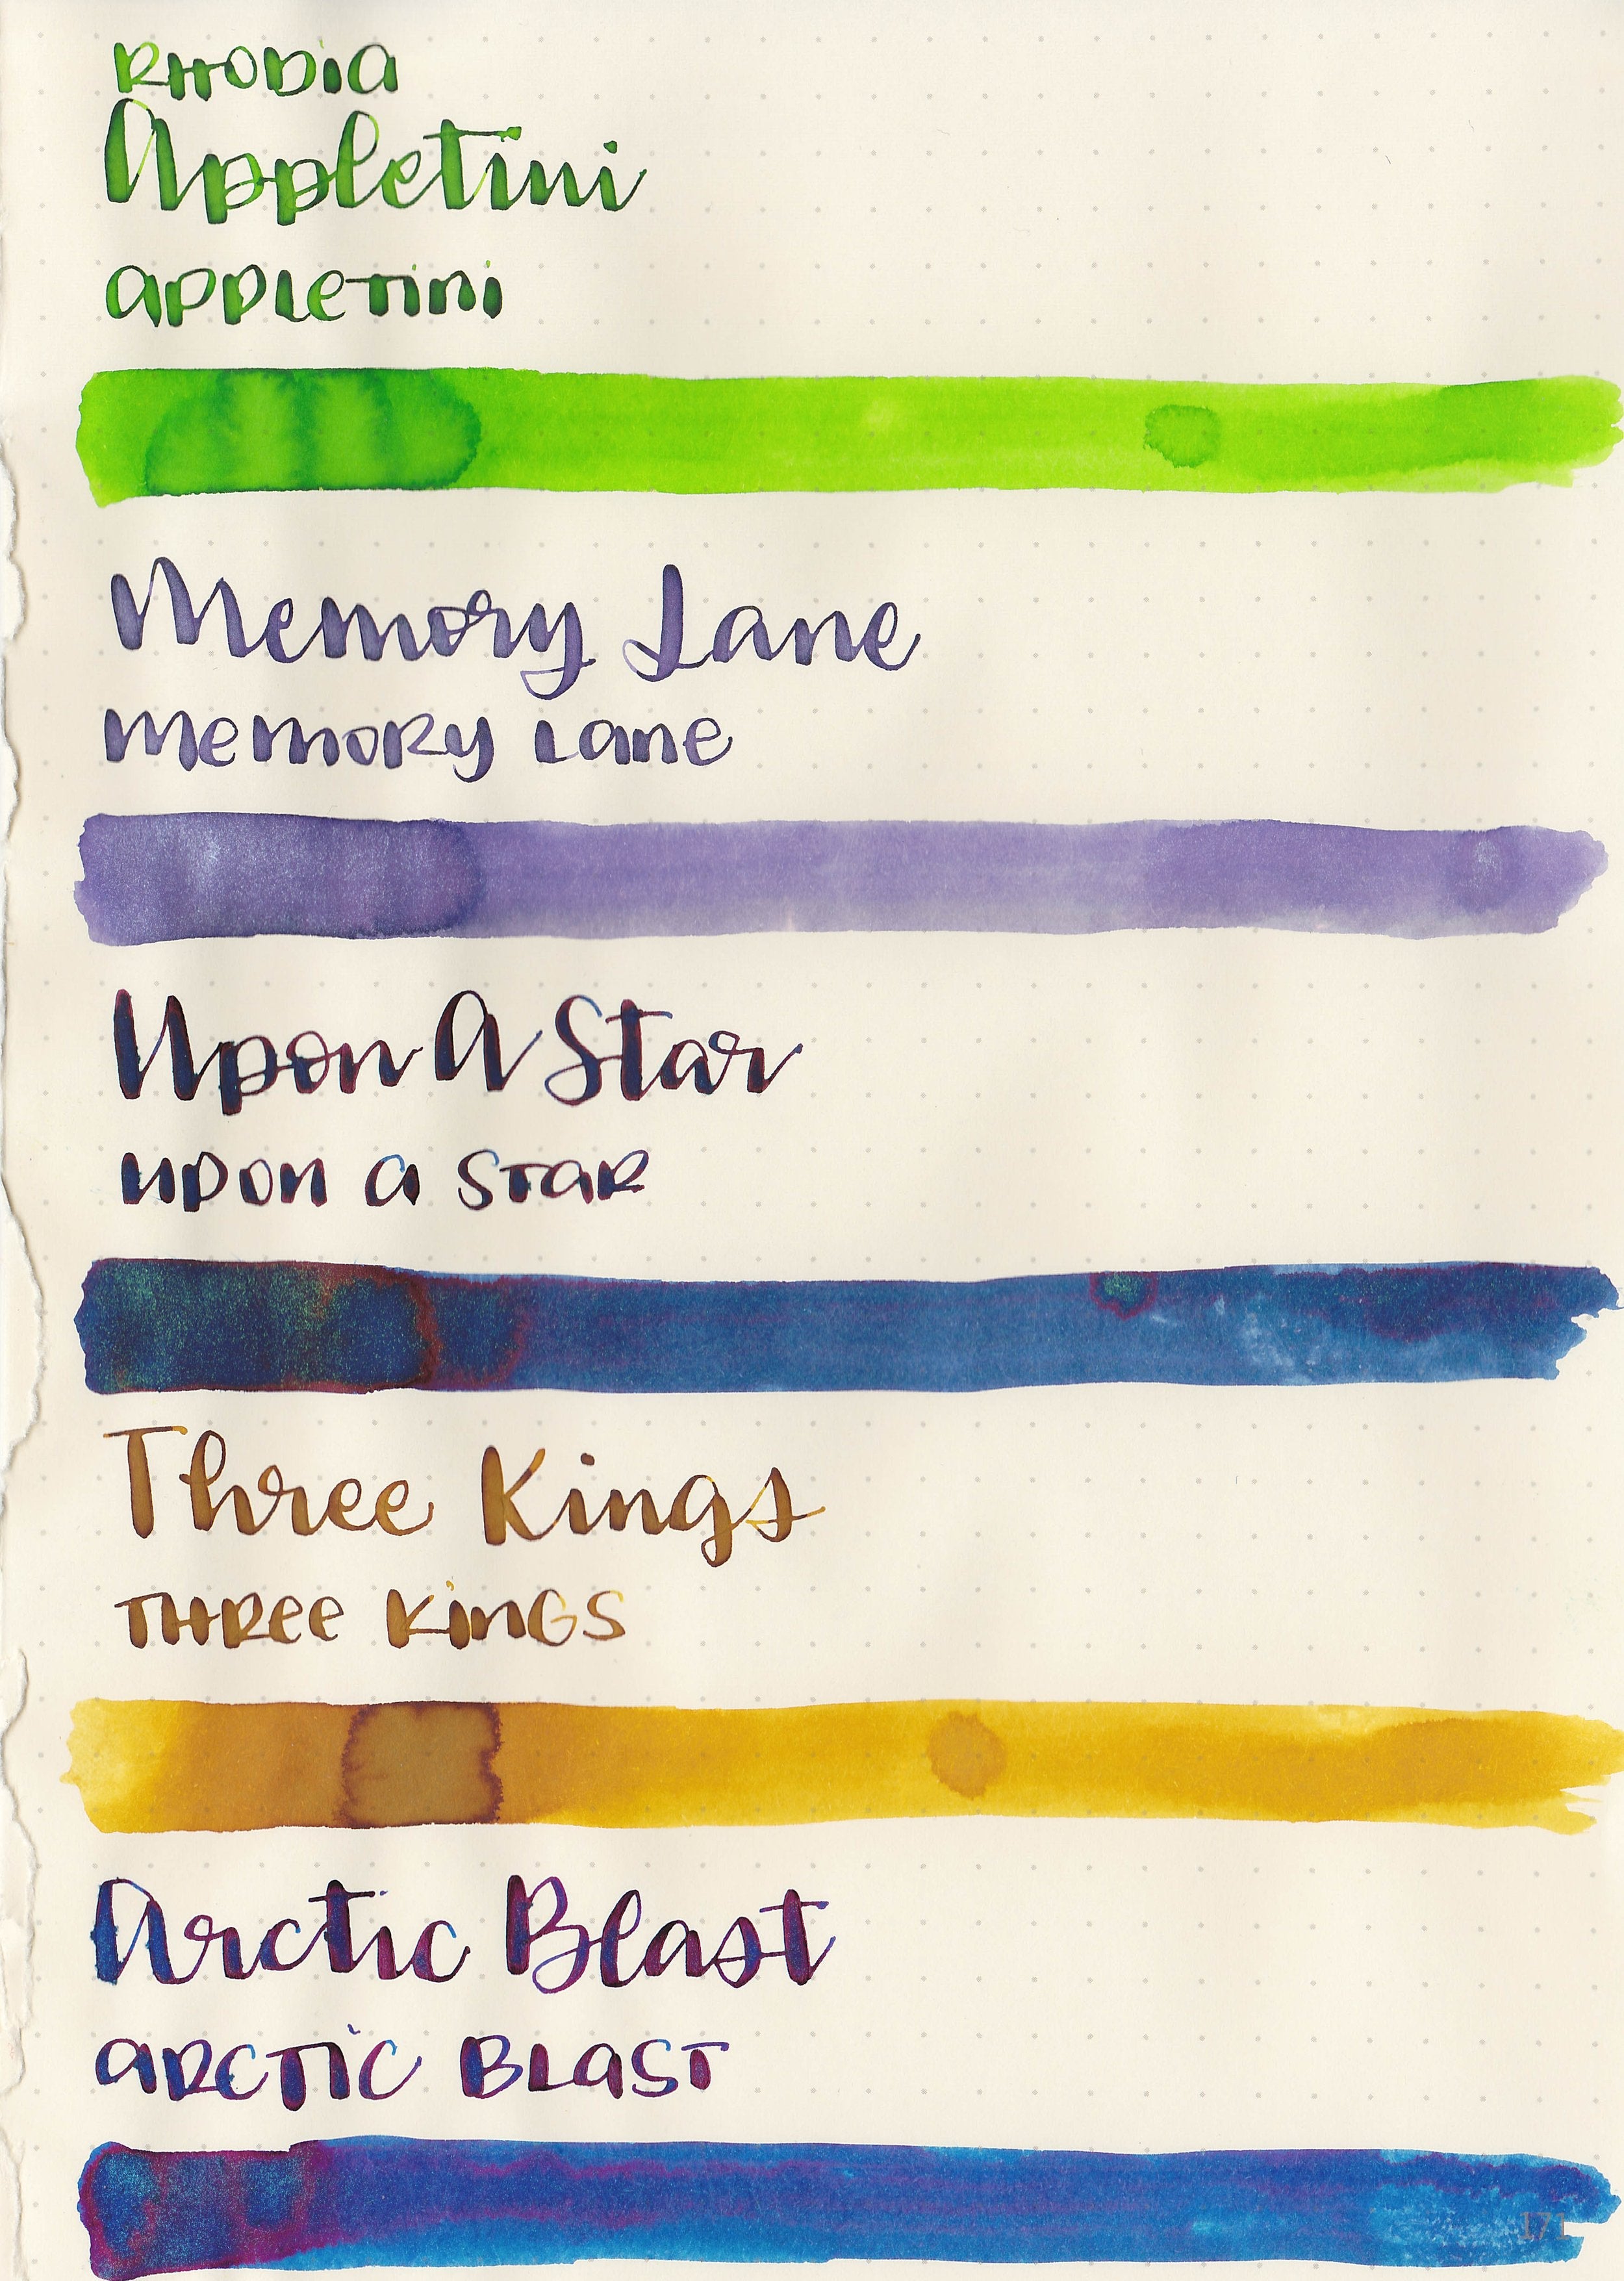 RHODIA
Appletini
APPLETINI
Memory Lane
MEMORY LANE
Upon A Star
UPON A STAR
Three Kings
THREE KINGS
Arctic Blast
ARCTIC BLAST
171